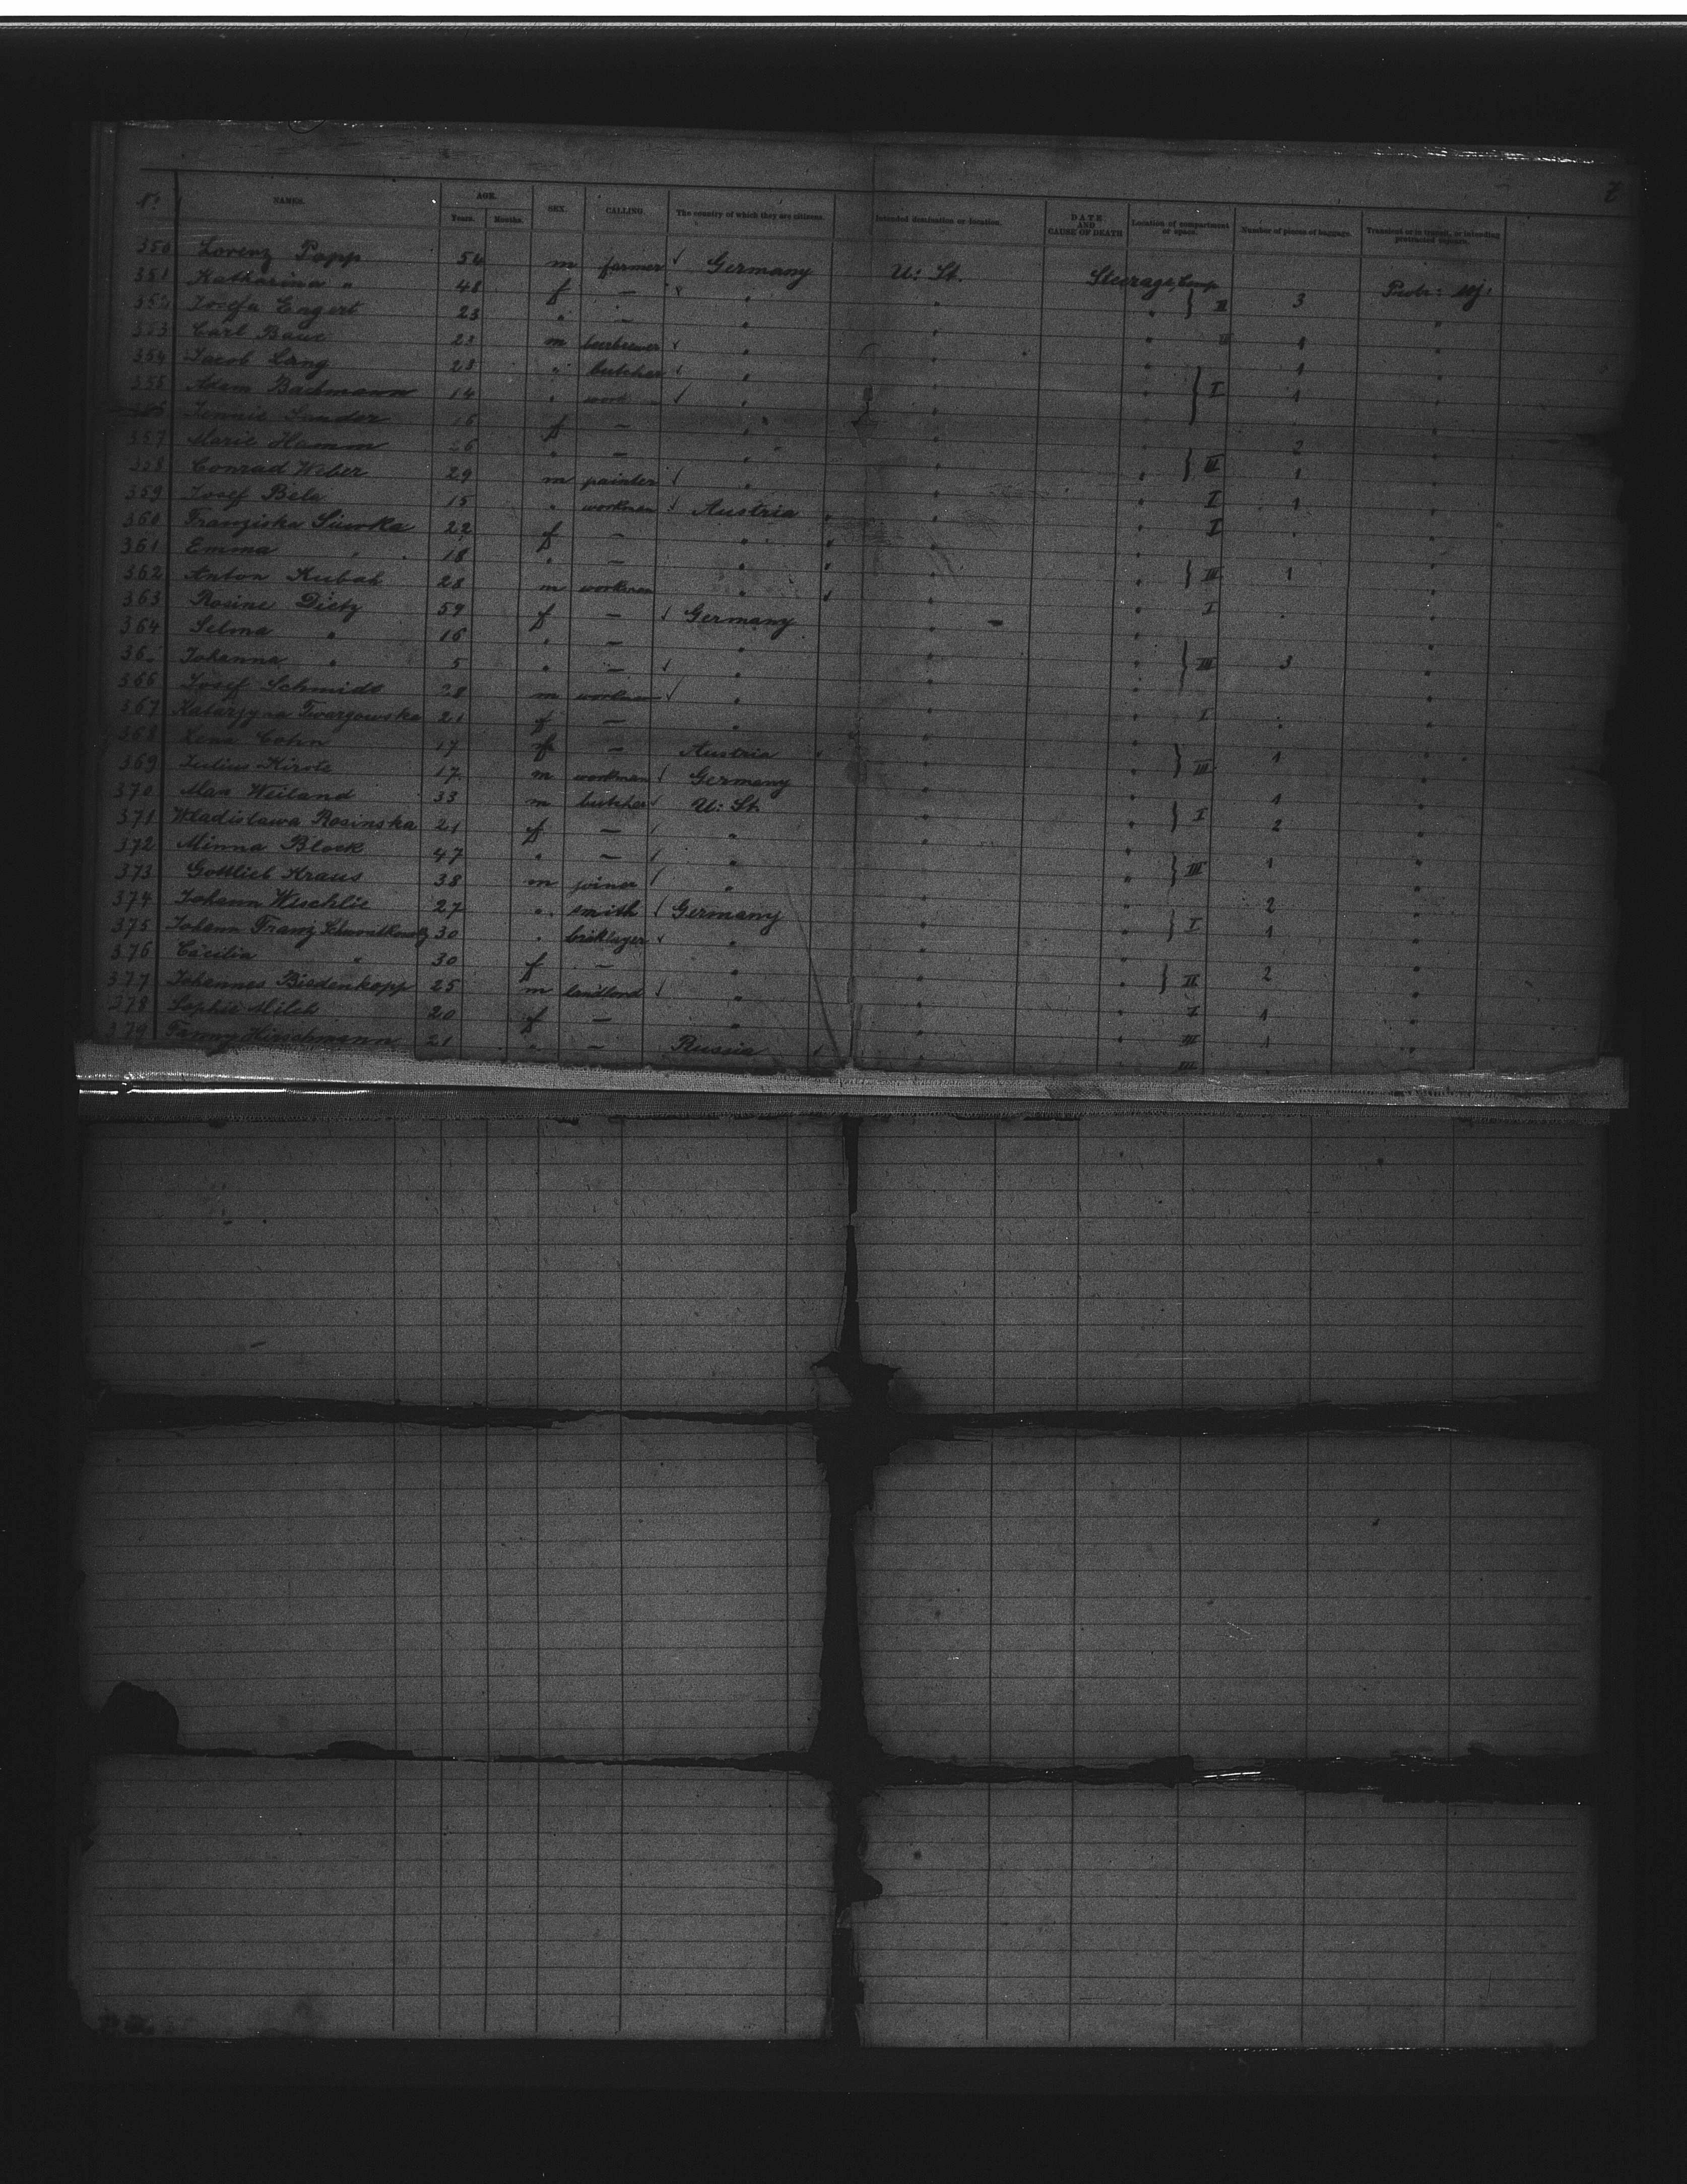 7
No. NAMES. AGE. Years. Months. SEX. CALLING. The country of which they are citizens. Intended destination or location. DATE AND CAUSE OF DEATH Location of compartment or space. Number of pieces of baggage. Transient or in transit, or intending protracted sojourn.
350 Lorenz Popp 54 m farmer Germany U: St. Steerage, Comp
351 Katharina " 48 f — " " " II 3
352 Josefa Engert 23 " — " " "
353 Carl Baue 23 m beerbrewer " " " 1 "
354 Jacob Lang 28 " butcher " " " 1 "
355 Adam Bachmann 14 " work " " " I 1 "
356 Jennie Sandor 16 f — " " "
357 Marie Hamm 26 " — " " " 2 "
358 Conrad Weber 29 m painter " " " III 1 "
359 Josef Bela 15 " workman Austria " " I 1 "
360 Franziska 22 f — " " " I "
361 Emma " 18 " — " " "
362 Anton Kubat 28 m workman " " " III 1 "
363 Rosine Dietz 59 f — Germany " " I "
364 Selma " 16 " — " " "
365 Johanna " 5 " — " " " III 3 "
366 Josef Schmidt 28 m workman " " "
367 Katarzyna 21 f — " " " I "
368 Lena Cohn 17 f — Austria "
369 Julius 17 m workman Germany " " III 1 "
370 Max Weiland 33 m butcher U: St. " " 1 "
371 Wladislawa Rosinska 21 f — " " " I 2 "
372 Minna Block 47 " — " "
373 Gottlieb Kraus 38 m joiner " " " III 1 "
374 Johann Weschlie 27 " smith Germany " " 2 "
375 Johann Franz 30 " bricklayer " " " I 1 "
376 Cäcilia " 30 f — " " " "
377 Johannes Biedenkopp 25 m landlord " " " II 2 "
378 Sophie Milch 20 f — " " " I 1 "
379 Fanny Hirschmann 21 " — Russia " " III 1 "
III